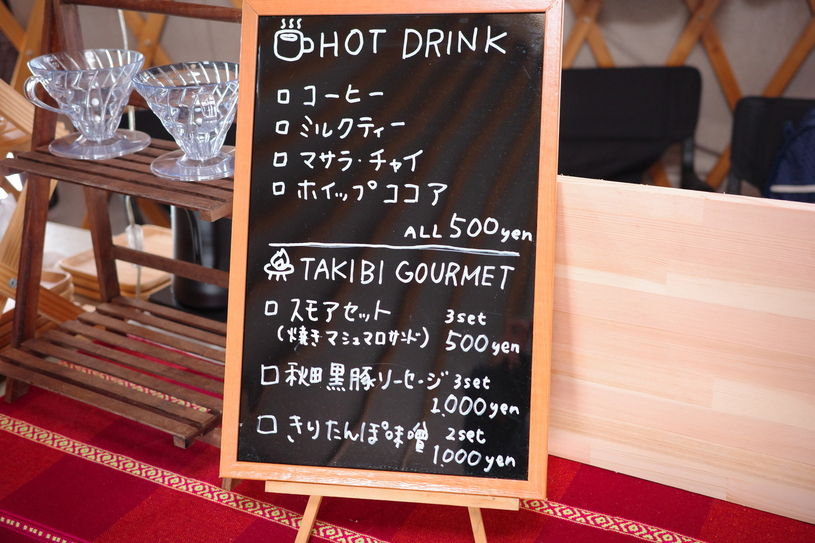 HOT DRINK
コーヒー
ミルクティー
マサラ・チャイ
ホイップココア
ALL 500yen
TAKIBI GOURMET
スモアセット 3set
(焼きマシュマロサンド) 500yen
秋田黒豚ソーセージ 3set
1.000yen
きりたんぽ味噌 2set
1.000yen